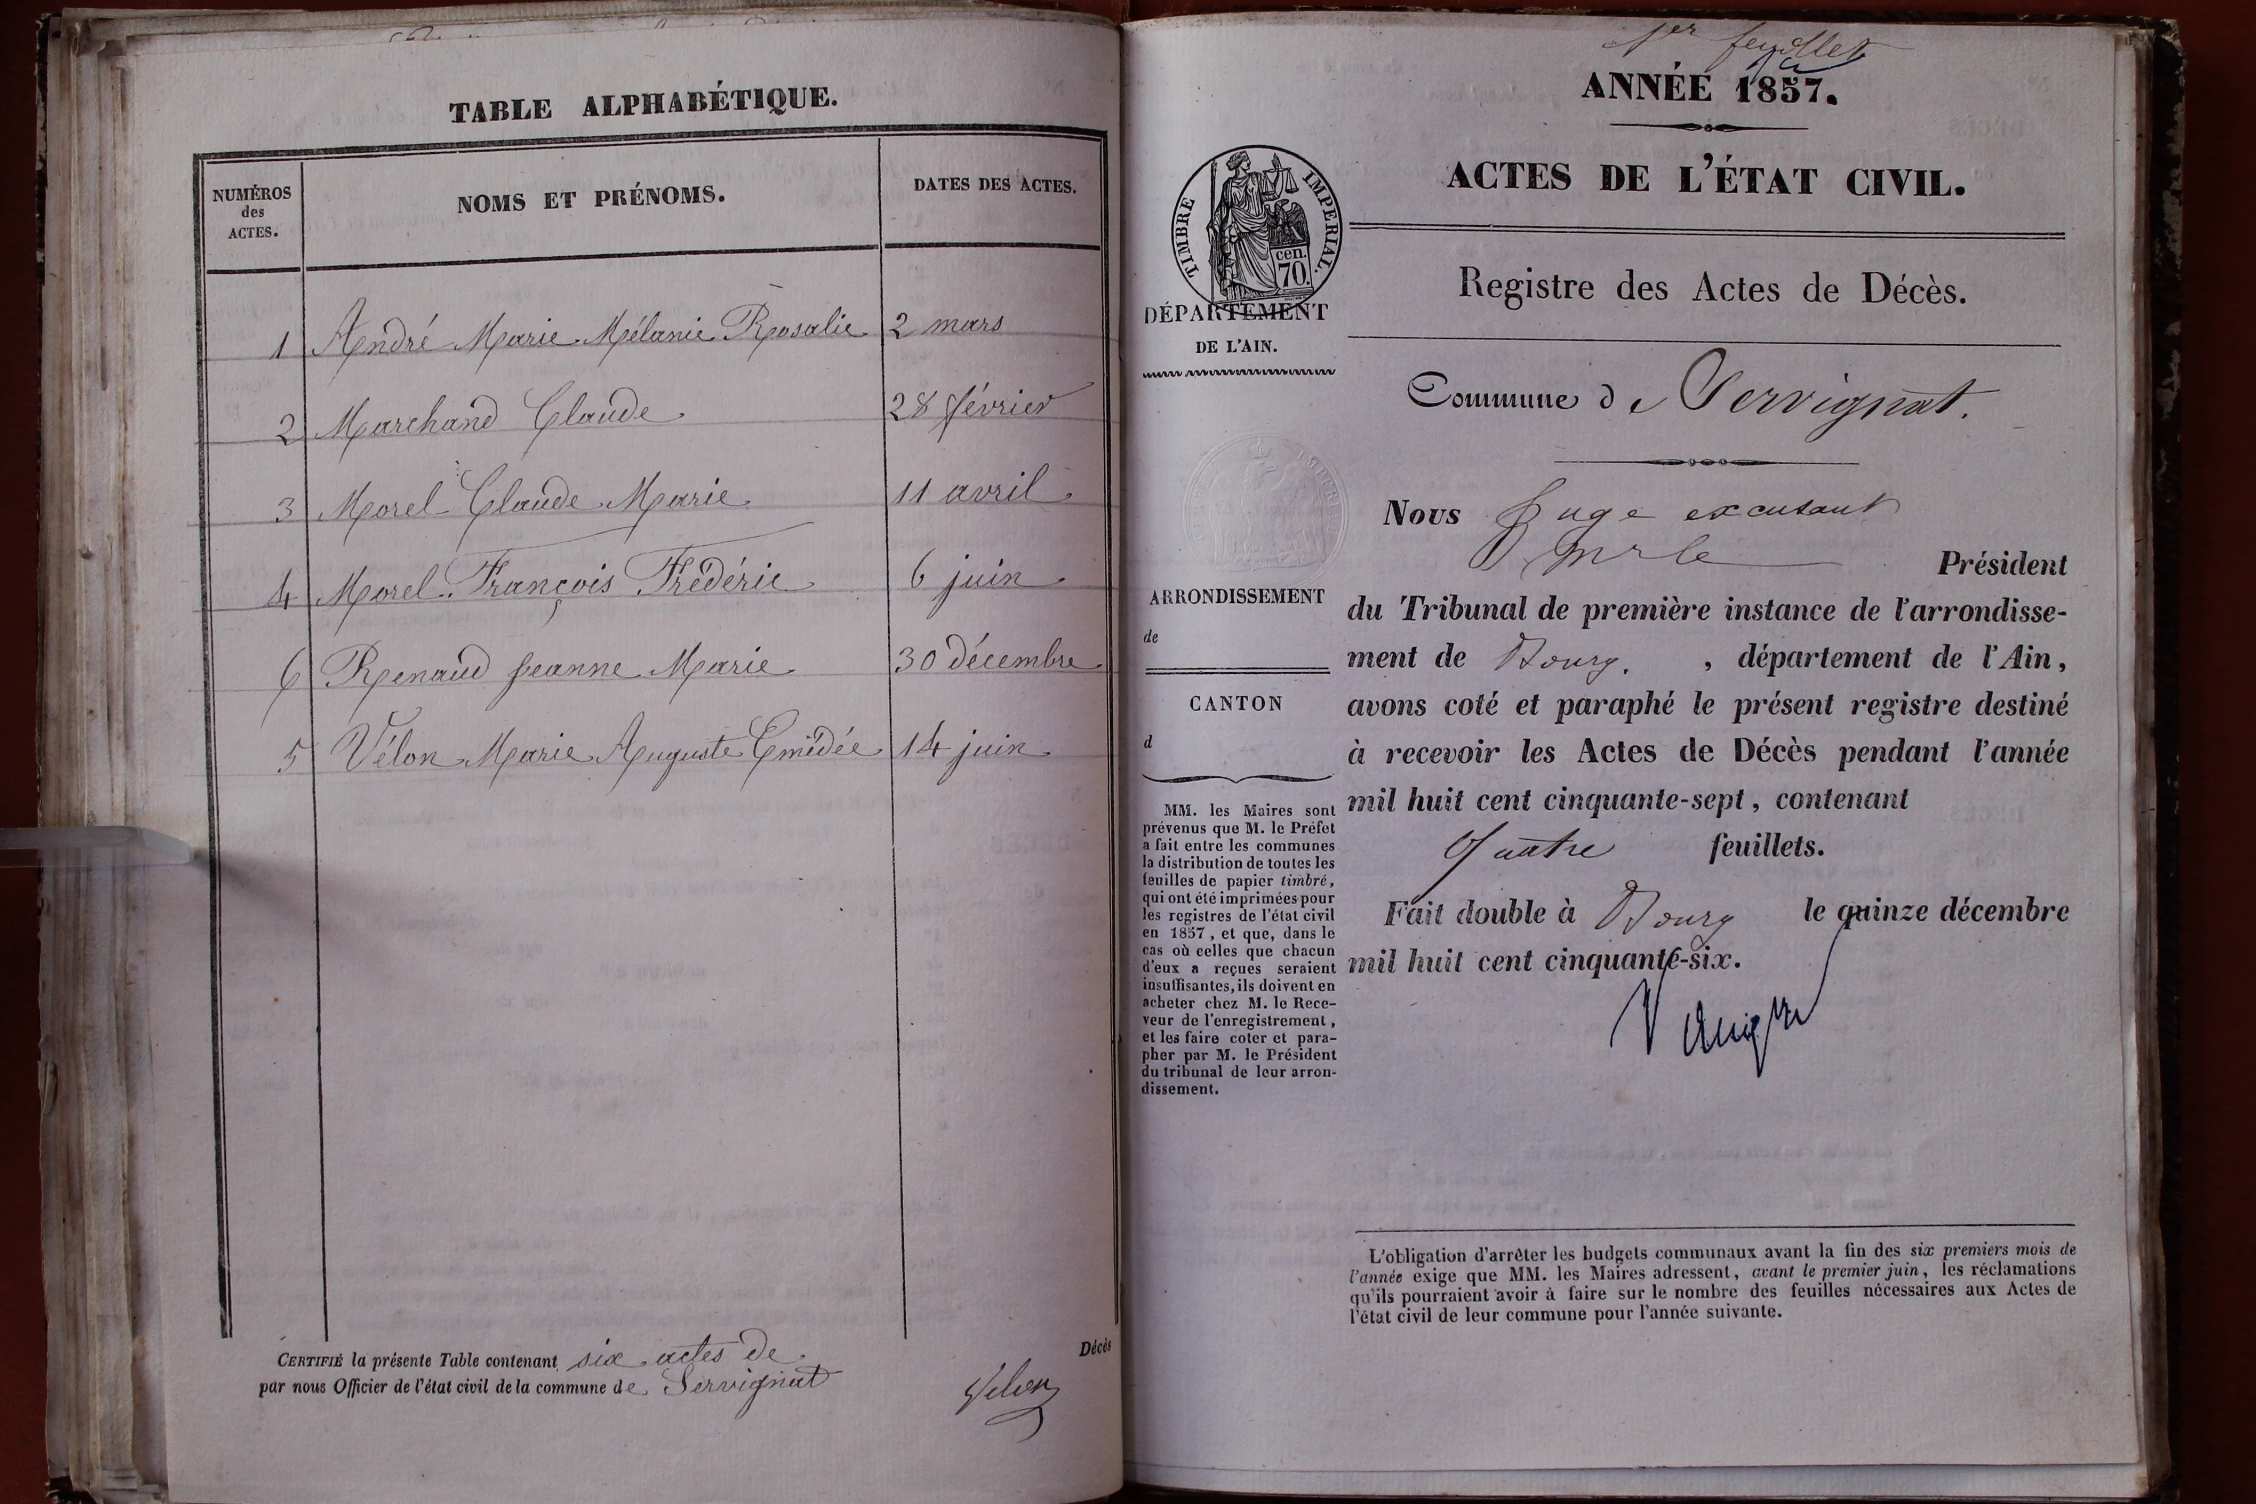 TABLE ALPHABÉTIQUE.
NUMÉROS
des
ACTES.
NOMS ET PRÉNOMS.
DATES DES ACTES.
1 André Marie Mélanie Rosalie 2 mars
2 Marchand Claude 28 février
3 Morel Claude Marie 11 avril
4 Morel François Frédéric 6 juin
6 Renaud Jeanne Marie 30 décembre
5 Vélon Marie Auguste Emédée 14 juin
CERTIFIÉ la présente Table contenant six actes de Décès
par nous Officier de l'état civil de la commune de Servignat
Velon
1er feuillet
ANNÉE 1857.
ACTES DE L'ÉTAT CIVIL.
TIMBRE IMPERIAL.
cen.
70.
DÉPARTEMENT
DE L'AIN.
Registre des Actes de Décès.
Commune de Servignat.
ARRONDISSEMENT
de
CANTON
d
MM. les Maires sont
prévenus que M. le Préfet
a fait entre les communes
la distribution de toutes les
feuilles de papier timbré,
qui ont été imprimées pour
les registres de l'état civil
en 1857, et que, dans le
cas où celles que chacun
d'eux a reçues seraient
insuffisantes, ils doivent en
acheter chez M. le Rece-
veur de l'enregistrement,
et les faire coter et para-
pher par M. le Président
du tribunal de leur arron-
dissement.
Nous Juge excusant
mr le Président
du Tribunal de première instance de l'arrondisse-
ment de Bourg. , département de l'Ain,
avons coté et paraphé le présent registre destiné
à recevoir les Actes de Décès pendant l'année
mil huit cent cinquante-sept, contenant
Quatre feuillets.
Fait double à Bourg le quinze décembre
mil huit cent cinquante-six.
L'obligation d'arrêter les budgets communaux avant la fin des six premiers mois de
l'année exige que MM. les Maires adressent, avant le premier juin, les réclamations
qu'ils pourraient avoir à faire sur le nombre des feuilles nécessaires aux Actes de
l'état civil de leur commune pour l'année suivante.